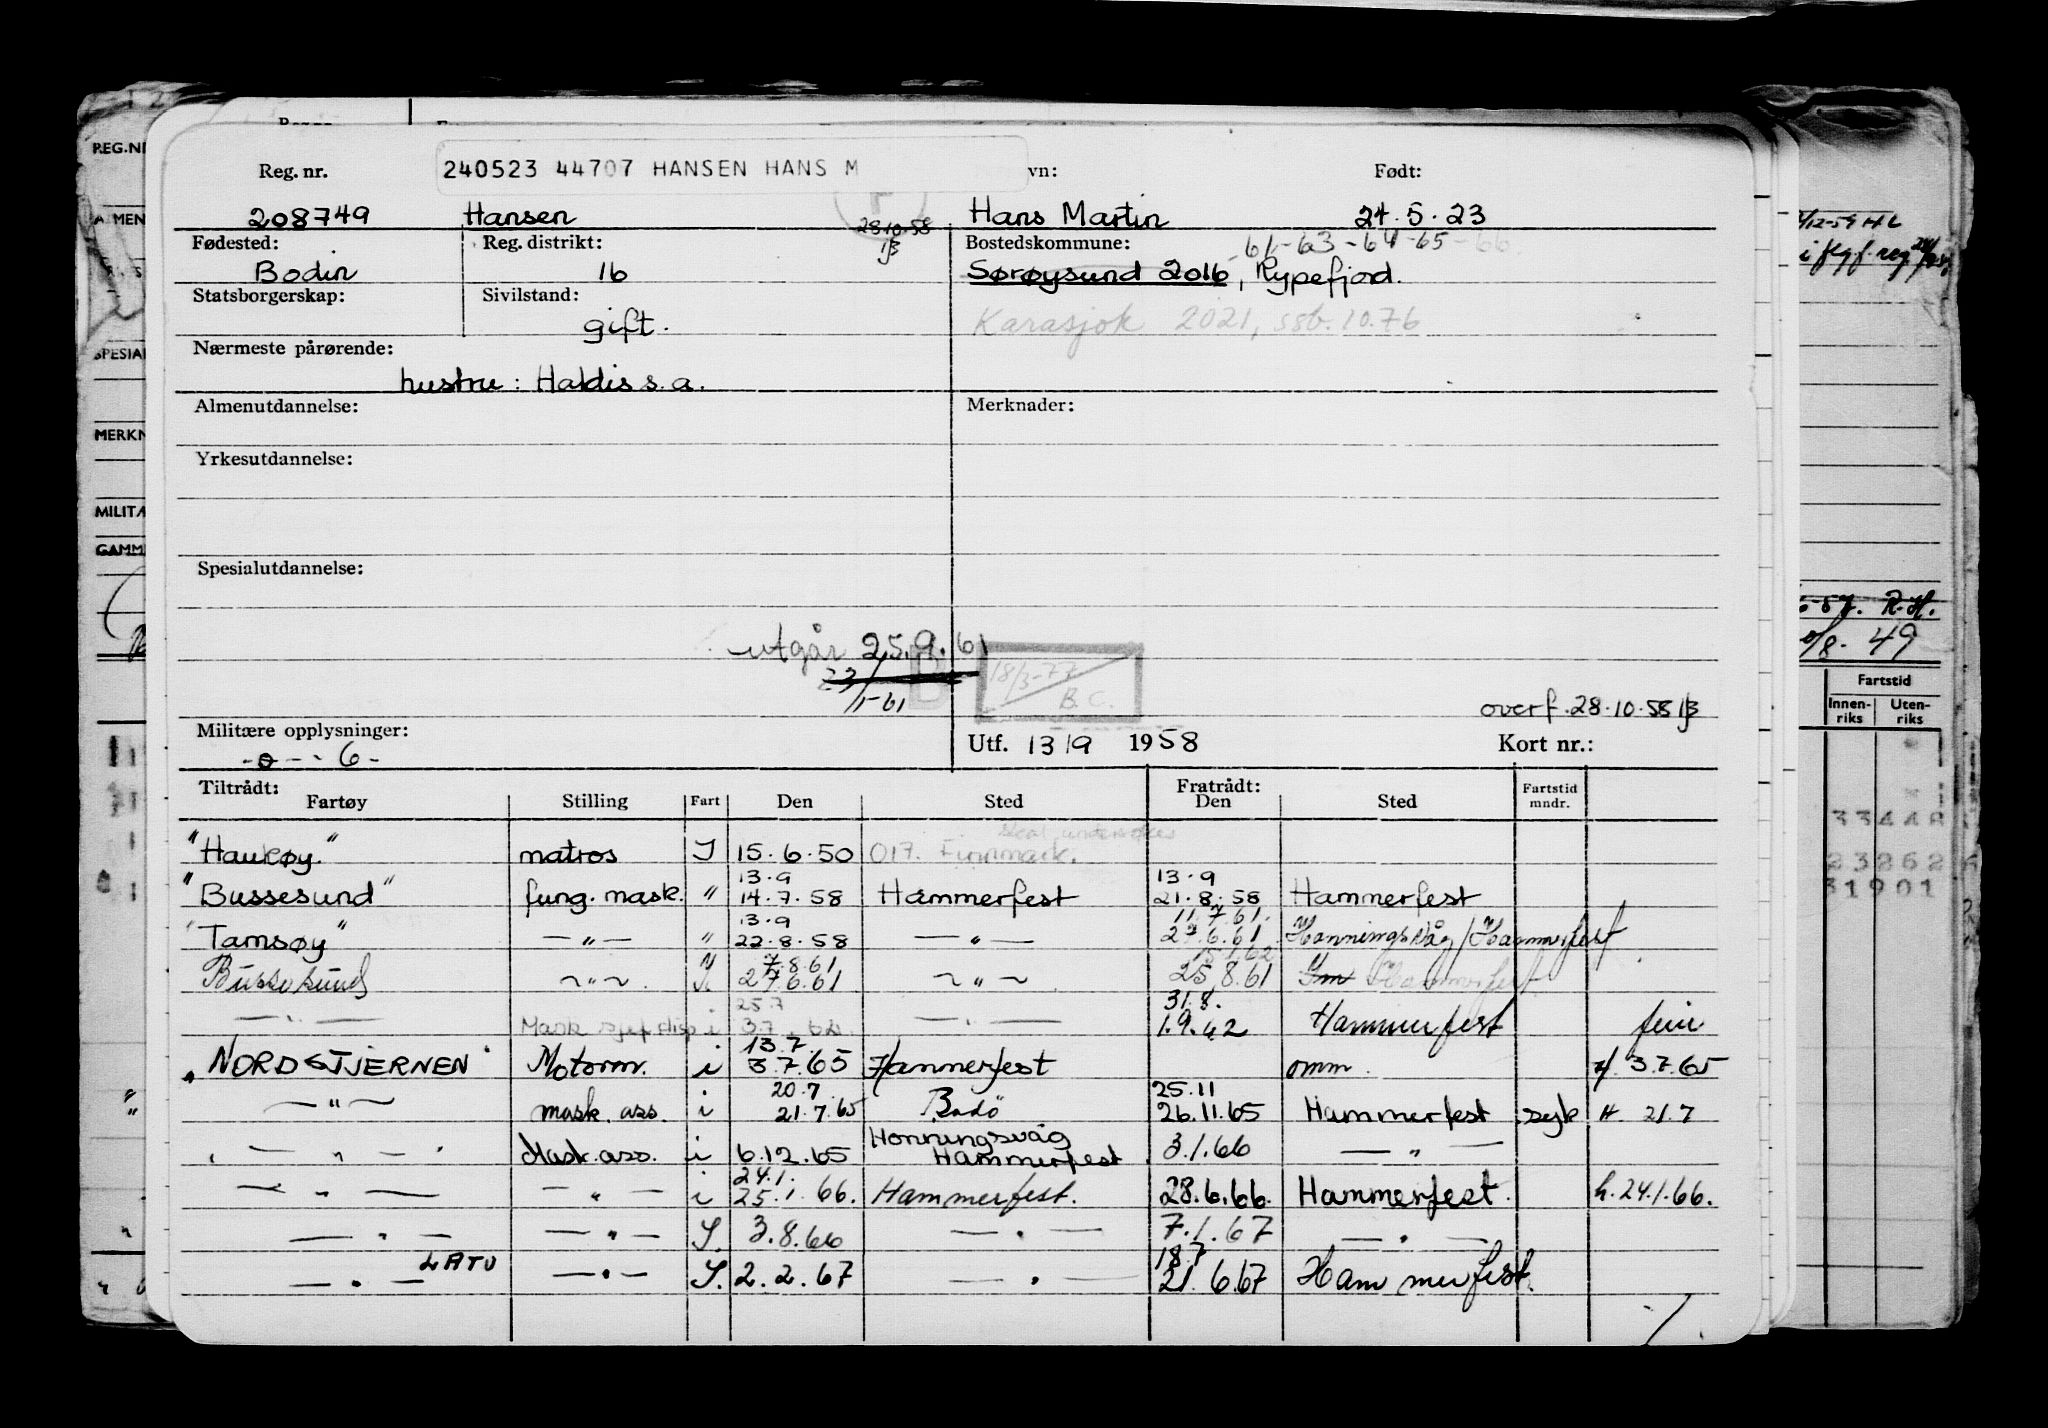 Reg. nr. 240523 44707 HANSEN HANS M vn: Født:
208749 Hansen Hans Martin 24.5.23
28.10.58
Fødested: Reg. distrikt: Bostedskommune: 61-63-64-65-66
Bodin 16 Sørøysund 2016, Rypefjord.
Statsborgerskap: Sivilstand:
gift. Karasjok 2021, ssb. 10.76
Nærmeste pårørende:
hustru: Haldis s.a.
Almenutdannelse: Merknader:
Yrkesutdannelse:
Spesialutdannelse:
utgår 25.9.61
23/1-61
18/3-77
B.C.
overf. 28.10.58
Militære opplysninger: Utf. 13/9 1958 Kort nr.:
-0--6-
Tiltrådt: Fratrådt:
Fartøy Stilling Fart Den Sted Den Sted Fartstid mndr.
skal undersøkes
"Haukøy." matros I 15.6.50 017. Finnmark.
13.9 13.9
"Bussesund" fung. mask. " 14.7.58 Hammerfest 21.8.58 Hammerfest
13.9 11.7.61.
"Tamsøy" —"— " 22.8.58 —"— 27.6.61 Honningsvåg/Hammerfest
7.8.61
Bussesund ~"~ 27.6.61 ~"~ 25.8.61 Hammerfest
25.7 31.8.
—"— Mask sjef disp i 3.7.62 —"— 1.9.62 Hammerfest ferie
13.7.
"NORDSTJERNEN" Motorm. i 3.7.65 Hammerfest omm. H. 3.7.65
20.7 25.11
—"— mask. ass. i 21.7.65 Bodö 26.11.65 Hammerfest syk H. 21.7
Honningsvåg
—"— Mask. ass. i 6.12.65 Hammerfest 3.1.66 —"
24.1.
—"— —"— i 25.1.66. Hammerfest. 28.6.66. Hammerfest. h. 24.1.66.
—"— —"— I. 3.8.66 —"— 7.1.67 —"—
LATU 18.7
—"— —"— I. 2.2.67 —"— 21.6.67 Hammerfest.
REG.NR
SPESIAL
MERKN
MILITÆ
GAMM
R.H.
49
Fartstid
Innenriks Utenriks
33448
23262
31901